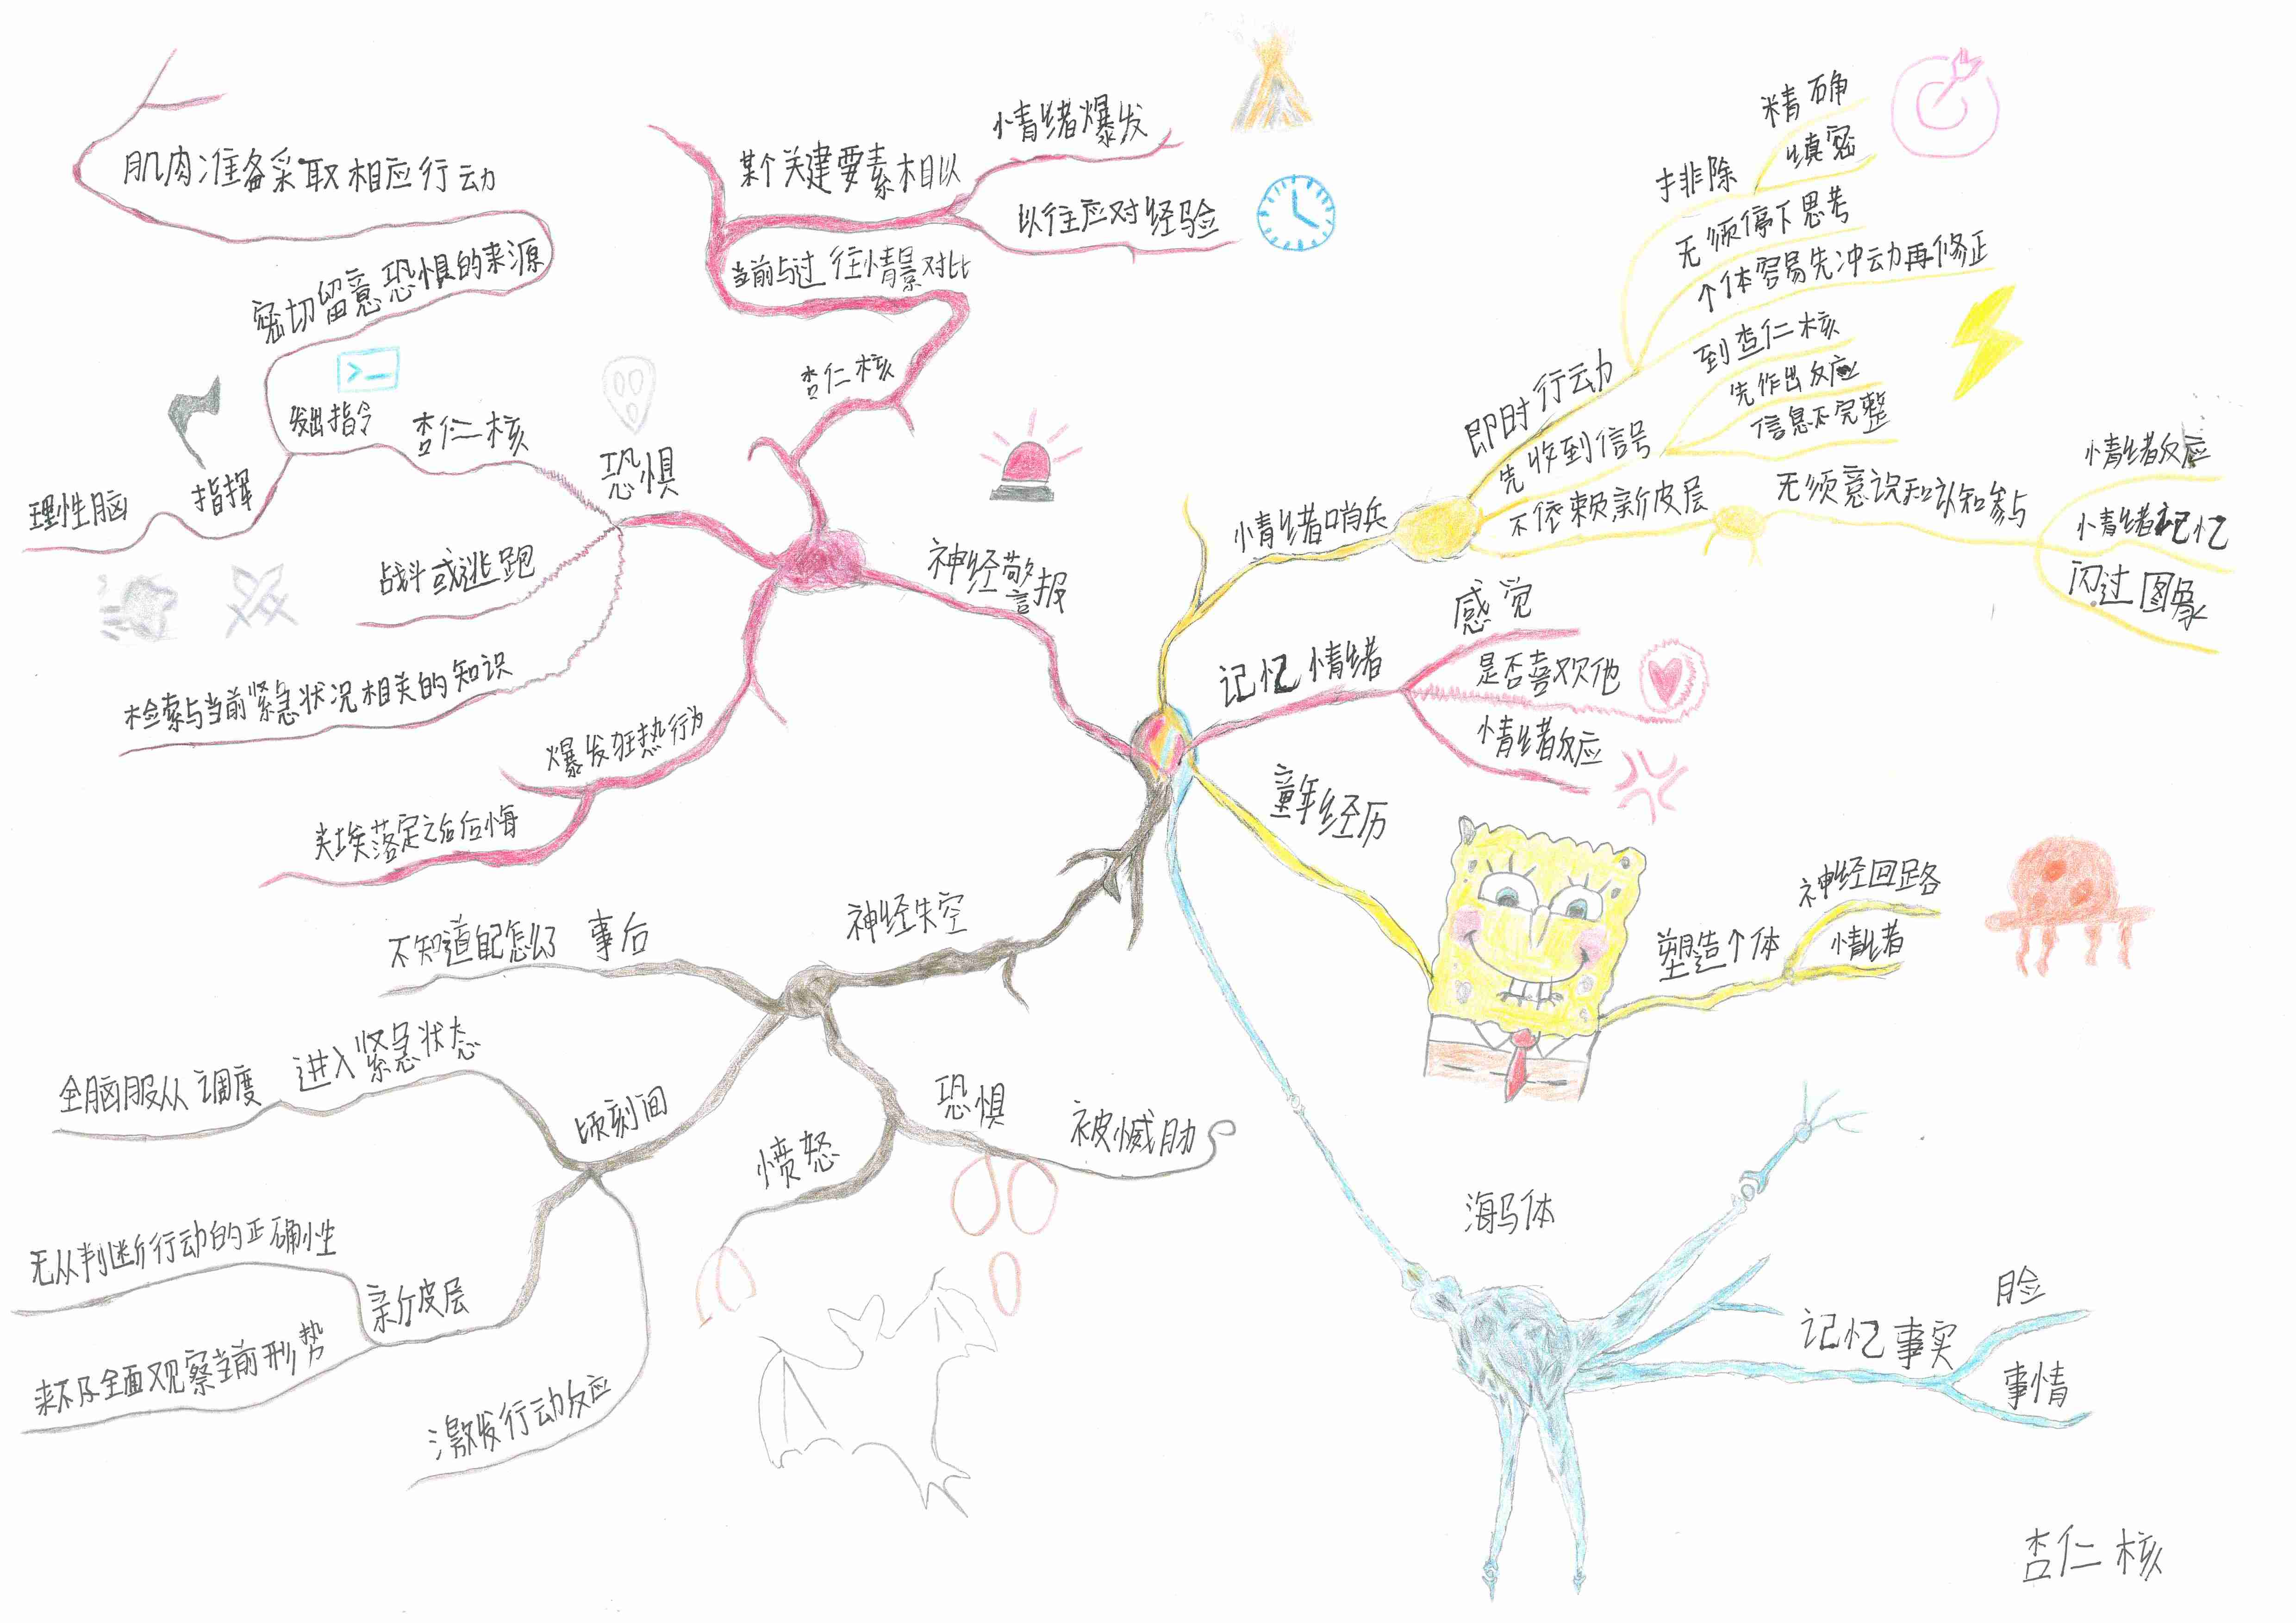 情绪哨兵
即时行动
排除
精确
缜密
无须停下思考
个体容易先冲动再修正
先收到信号
到杏仁核
先作出反应
信息不完整
不依赖新皮层
无须意识和认知参与
情绪反应
情绪记忆
闪过图象
记忆情绪
感觉
是否喜欢他
情绪反应
童年经历
塑造个体
神经回路
情绪
海马体
记忆事实
脸
事情
神经失空
恐惧
被威胁
愤怒
顷刻间
激发行动反应
新皮层
来不及全面观察当前形势
无从判断行动的正确性
进入紧急状态
全脑服从调度
事后
不知道自己怎么了
神经警报
爆发狂热行为
尘埃落定之后后悔
恐惧
检索与当前紧急状况相关的知识
战斗或逃跑
杏仁核
指挥
理性脑
发出指令
密切留意恐惧的来源
肌肉准备采取相应行动
杏仁核
当前与过往情景对比
某个关建要素相似
情绪爆发
以往应对经验
杏仁核